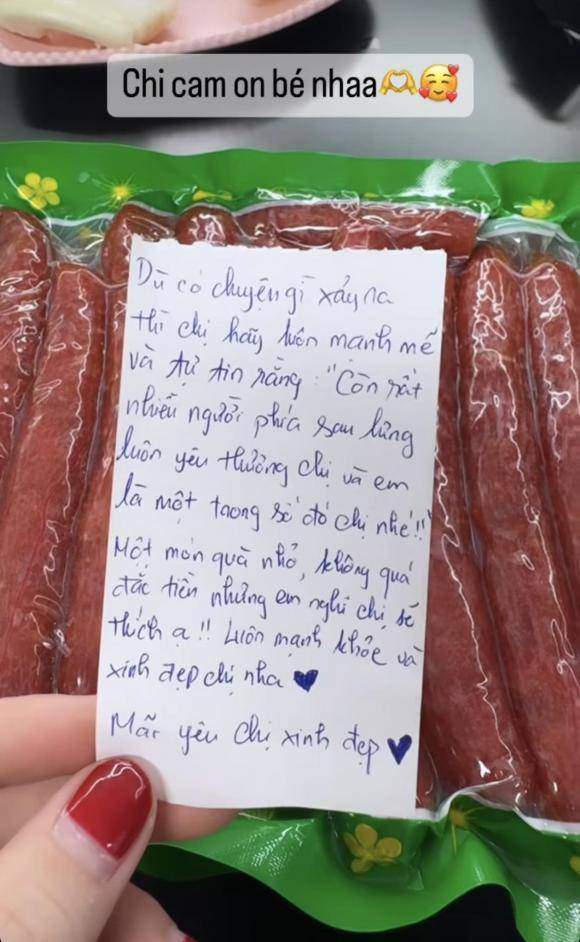 Chi cam on bé nhaa🫶🥰
Dù có chuyện gì xảy ra
thì chị hãy luôn mạnh mẽ
và tự tin rằng: "Còn rất
nhiều người phía sau lưng
luôn yêu thương chị và em
là một trong số đó chị nhé!!
Một món quà nhỏ, không quá
đắc tiền nhưng em nghĩ chị sẽ
thích ạ!! Luôn mạnh khỏe và
xinh đẹp chị nha ♥
Mãi yêu chị xinh đẹp ♥